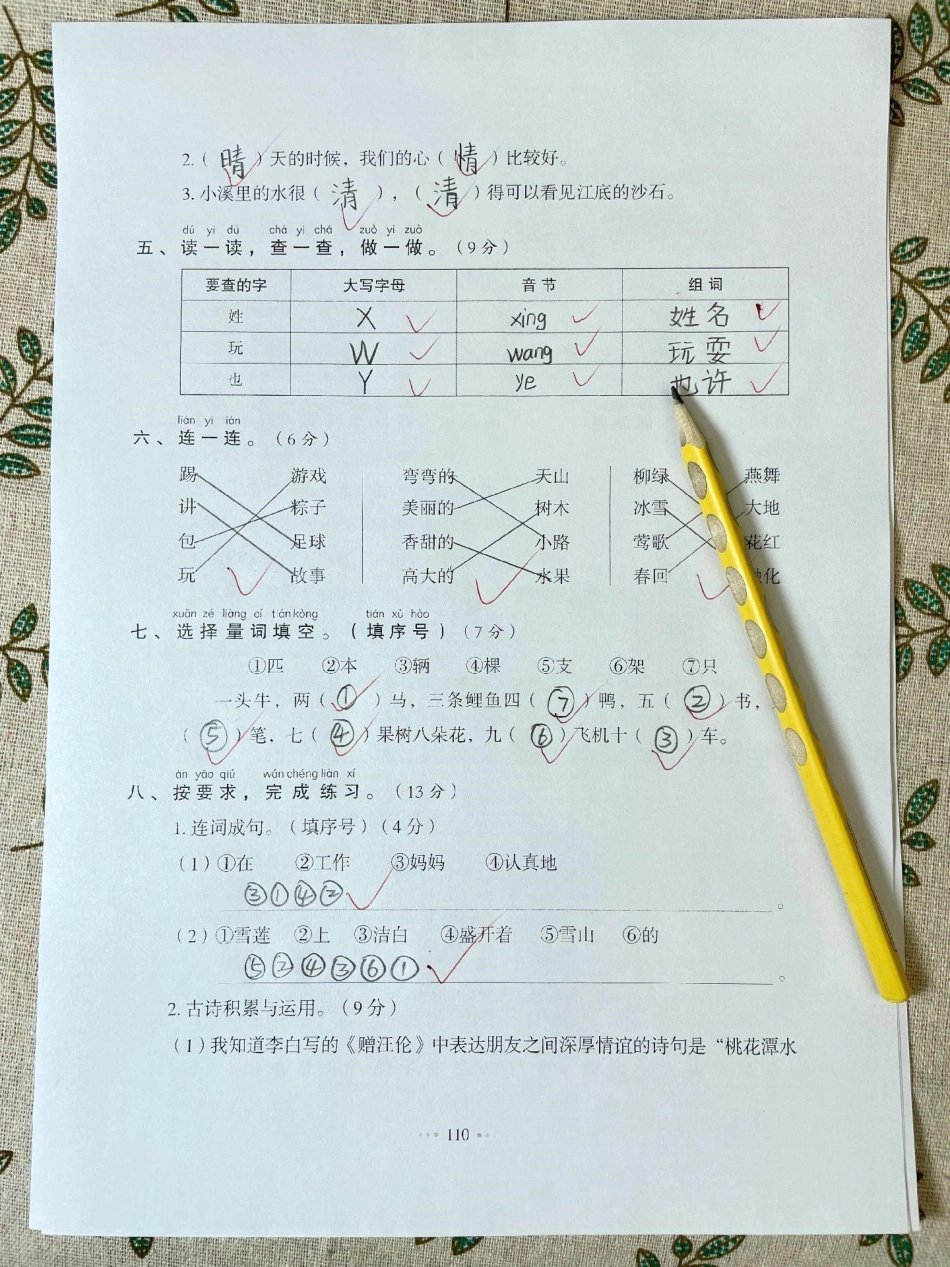 2.（ 晴 ）天的时候，我们的心（ 情 ）比较好。
3.小溪里的水很（ 清 ），（ 清 ）得可以看见江底的沙石。
dú yi dú chá yi chá zuò yi zuò
五、读一读，查一查，做一做。（9分）
要查的字 大写字母 音节 组词
姓 X xing 姓名
玩 W wang 玩耍
也 Y ye 也许
lián yi lián
六、连一连。（6分）
踢 游戏 弯弯的 天山 柳绿 燕舞
讲 粽子 美丽的 树木 冰雪 大地
包 足球 香甜的 小路 莺歌 花红
玩 故事 高大的 水果 春回 化
xuǎn zé liàng cí tián kòng tián xù hào
七、选择量词填空。（填序号）（7分）
①匹 ②本 ③辆 ④棵 ⑤支 ⑥架 ⑦只
一头牛，两（ ① ）马，三条鲤鱼四（ ⑦ ）鸭，五（ ② ）书，
（ ⑤ ）笔，七（ ④ ）果树八朵花，九（ ⑥ ）飞机十（ ③ ）车。
àn yāo qiú wán chéng liàn xí
八、按要求，完成练习。（13分）
1.连词成句。（填序号）（4分）
（1）①在 ②工作 ③妈妈 ④认真地
③①④②。
（2）①雪莲 ②上 ③洁白 ④盛开着 ⑤雪山 ⑥的
⑤②④③⑥①。
2.古诗积累与运用。（9分）
（1）我知道李白写的《赠汪伦》中表达朋友之间深厚情谊的诗句是“桃花潭水
110